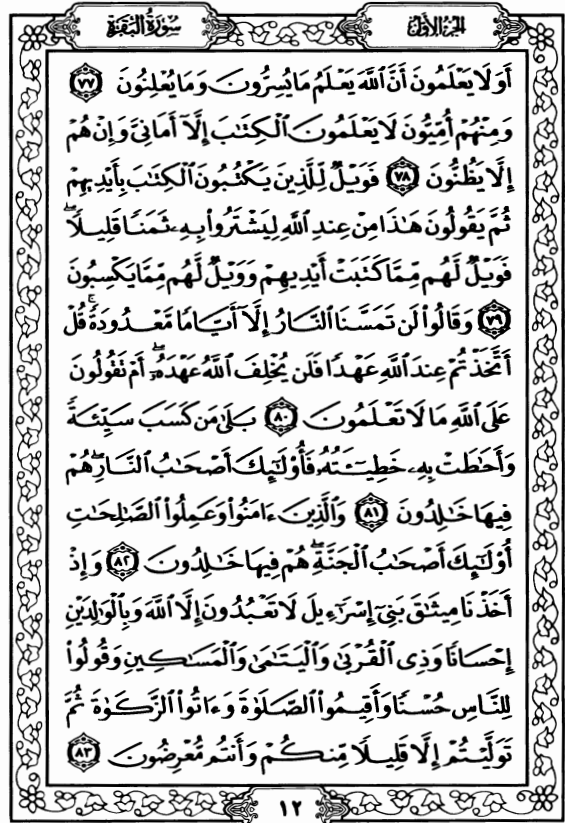 سُورَةُ البَقَرَةِ
الجزء الأوّل
أَوَلَا يَعْلَمُونَ أَنَّ ٱللَّهَ يَعْلَمُ مَا يُسِرُّونَ وَمَا يُعْلِنُونَ ٧٧
وَمِنْهُمْ أُمِّيُّونَ لَا يَعْلَمُونَ ٱلْكِتَٰبَ إِلَّآ أَمَانِىَّ وَإِنْ هُمْ
إِلَّا يَظُنُّونَ ٧٨ فَوَيْلٌ لِّلَّذِينَ يَكْتُبُونَ ٱلْكِتَٰبَ بِأَيْدِيهِمْ
ثُمَّ يَقُولُونَ هَٰذَا مِنْ عِندِ ٱللَّهِ لِيَشْتَرُوا۟ بِهِۦ ثَمَنًا قَلِيلًا ۖ
فَوَيْلٌ لَّهُم مِّمَّا كَتَبَتْ أَيْدِيهِمْ وَوَيْلٌ لَّهُم مِّمَّا يَكْسِبُونَ
٧٩ وَقَالُوا۟ لَن تَمَسَّنَا ٱلنَّارُ إِلَّآ أَيَّامًا مَّعْدُودَةً ۚ قُلْ
أَتَّخَذْتُمْ عِندَ ٱللَّهِ عَهْدًا فَلَن يُخْلِفَ ٱللَّهُ عَهْدَهُۥٓ ۖ أَمْ تَقُولُونَ
عَلَى ٱللَّهِ مَا لَا تَعْلَمُونَ ٨٠ بَلَىٰ مَن كَسَبَ سَيِّئَةً
وَأَحَٰطَتْ بِهِۦ خَطِيٓـَٔتُهُۥ فَأُو۟لَٰٓئِكَ أَصْحَٰبُ ٱلنَّارِ ۖ هُمْ
فِيهَا خَٰلِدُونَ ٨١ وَٱلَّذِينَ ءَامَنُوا۟ وَعَمِلُوا۟ ٱلصَّٰلِحَٰتِ
أُو۟لَٰٓئِكَ أَصْحَٰبُ ٱلْجَنَّةِ ۖ هُمْ فِيهَا خَٰلِدُونَ ٨٢ وَإِذْ
أَخَذْنَا مِيثَٰقَ بَنِىٓ إِسْرَٰٓءِيلَ لَا تَعْبُدُونَ إِلَّا ٱللَّهَ وَبِٱلْوَٰلِدَيْنِ
إِحْسَانًا وَذِى ٱلْقُرْبَىٰ وَٱلْيَتَٰمَىٰ وَٱلْمَسَٰكِينِ وَقُولُوا۟
لِلنَّاسِ حُسْنًا وَأَقِيمُوا۟ ٱلصَّلَوٰةَ وَءَاتُوا۟ ٱلزَّكَوٰةَ ثُمَّ
تَوَلَّيْتُمْ إِلَّا قَلِيلًا مِّنكُمْ وَأَنتُم مُّعْرِضُونَ ٨٣
١٢